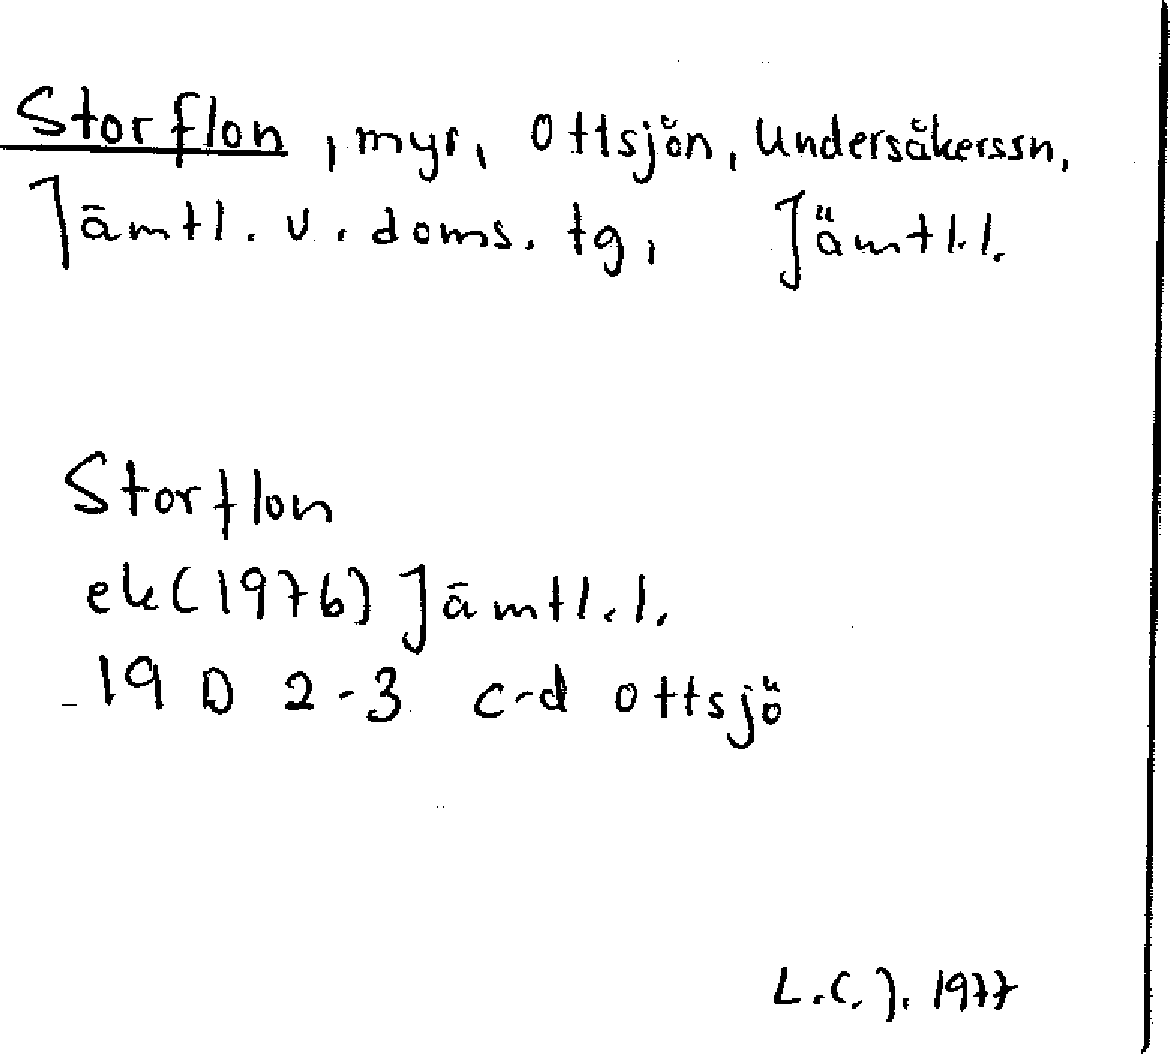 Storflon, myr, Ottsjön, Undersåkerssn,
Jämtl. v. doms. tg, Jämtl.l.
Storflon
ek(1976) Jämtl.l.
19 D 2-3 c-d Ottsjö
L.C.J. 1977